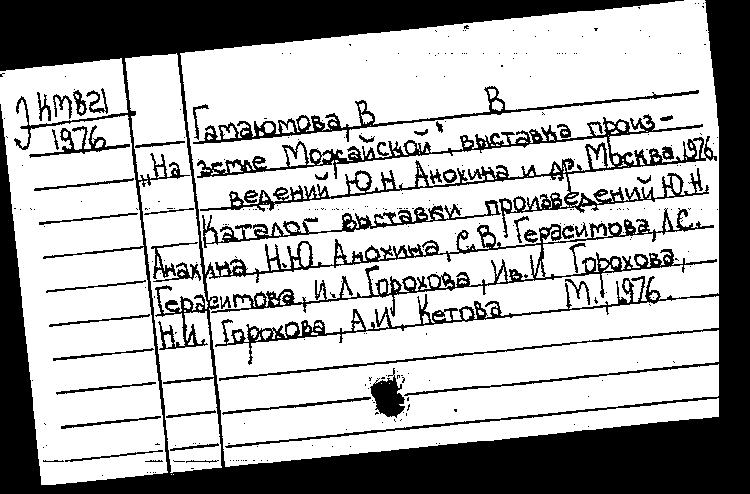 J КМ821
1976
Гамаюмова, В В
„На земле Можайской", выставка произ-
ведений Ю.Н. Анохина и др. Москва. 1976.
Каталог выставки произведений Ю.Н.
Анахина, Н.Ю. Анохина, С.В. Герасимова, Л.С.
Герасимова, И.Л. Горохова, Ив.И. Горохова,
Н.И. Горохова, А.И. Кетова. М., 1976.